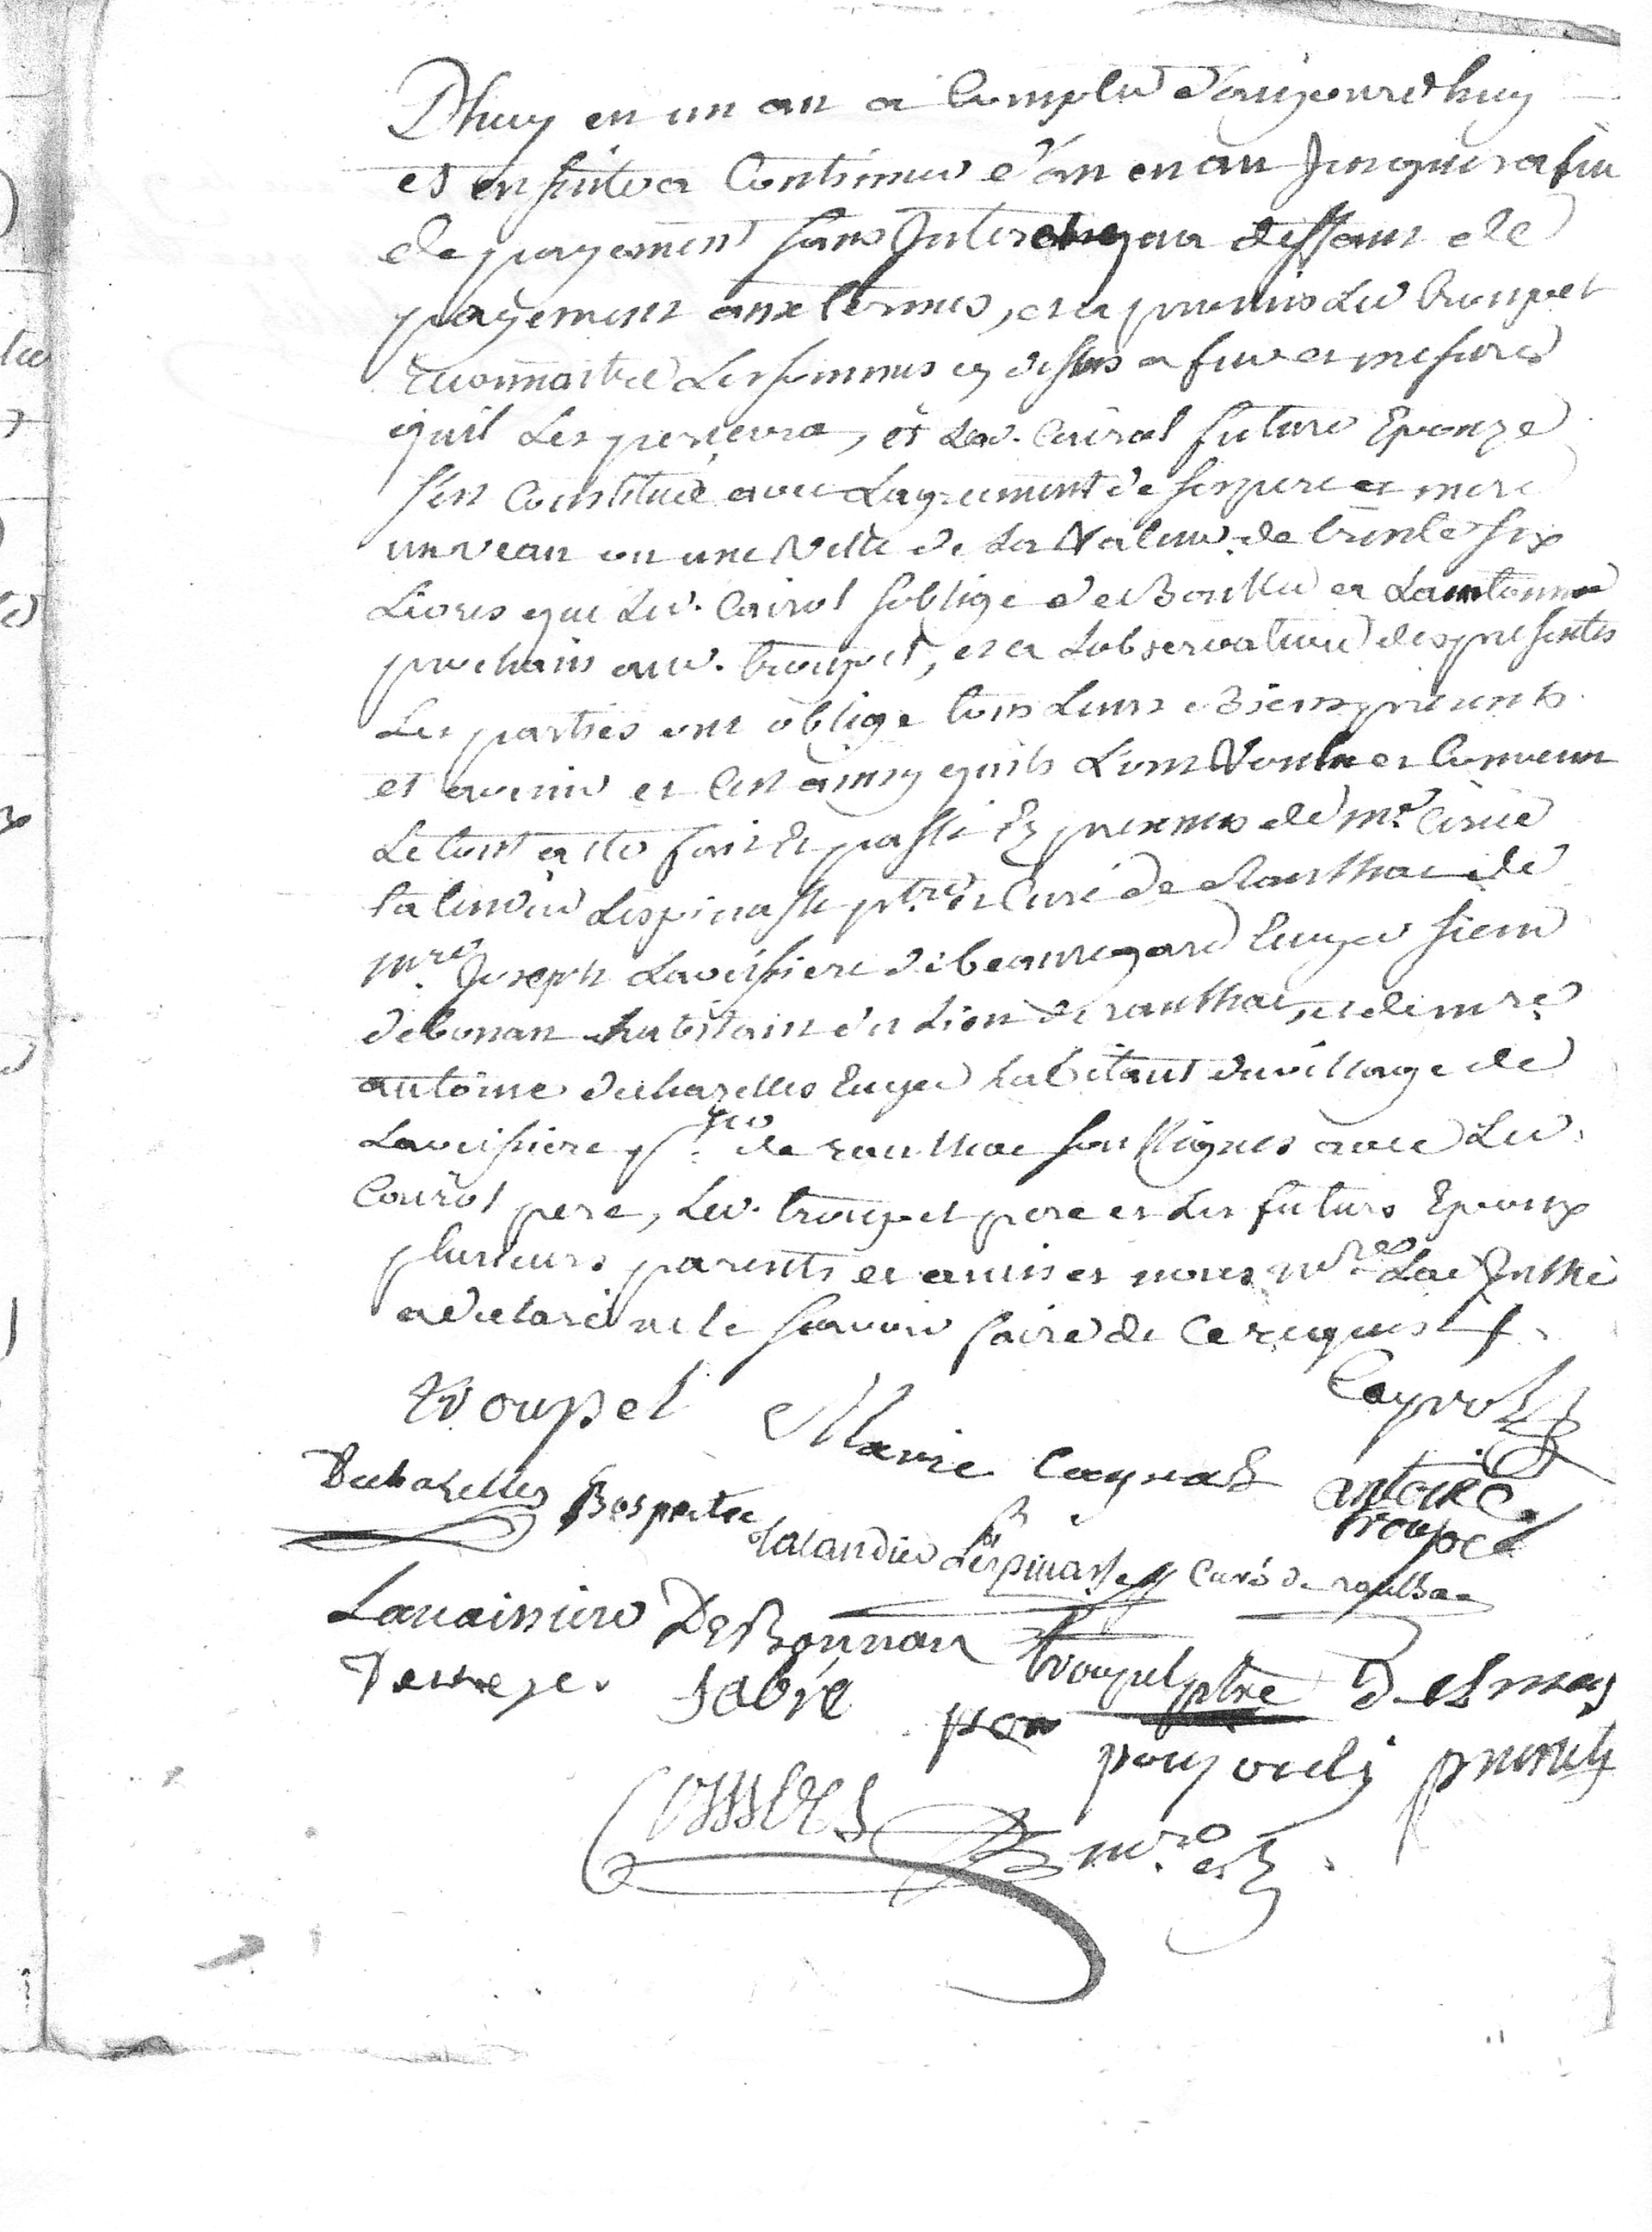 Dhuy en un an a Compter d'aujourd'huy
et ensuite a Continuer d'an en an Jusques a fin
de payement sans Interets qua deffaut de
payement aux termes, et a promis led. troupel
reconnoitre Les sommes cy dessus a fur et mesure
quil Les percevra, et lad. Cairol future Epouze
sest Constitué avec Lagrement de ses pere et mere
un veau ou une Velle de La Valeur de trente six
Livres que led. Cairol soblige de Bailler a Lautonne
prochain aud. troupel, et a Lobservation des presentes
Les parties ont oblige tous Leurs Biens presents
et avenir et Cest ainsy quils Lont Voulu et Convenu
Le tout a ete fait et passé Ez presences de mre
talendier Lespinasse ptre et Curé de roulhac de
mre Joseph Laveissiere de beauregard Ecuyer sieur
debonan habitant du Lieu de roulhac, et de mre
antoine dechazelles Ecuyer habitant du village de
Laveissiere psse de roulhac soussignes avec Led.
Cairol pere, Led. troupel pere et Les futurs Epoux
plusieurs parents et amis et nous nre
a declaré ne le scavoir faire de Ce requise
troupel Marie Cayrol Cayrol
Dechazelles antoine
troupel
talandier Lespinasse Curé de roulhac
Lavaissiere De Bonnan troupel ptre Delmas
fabre
nre